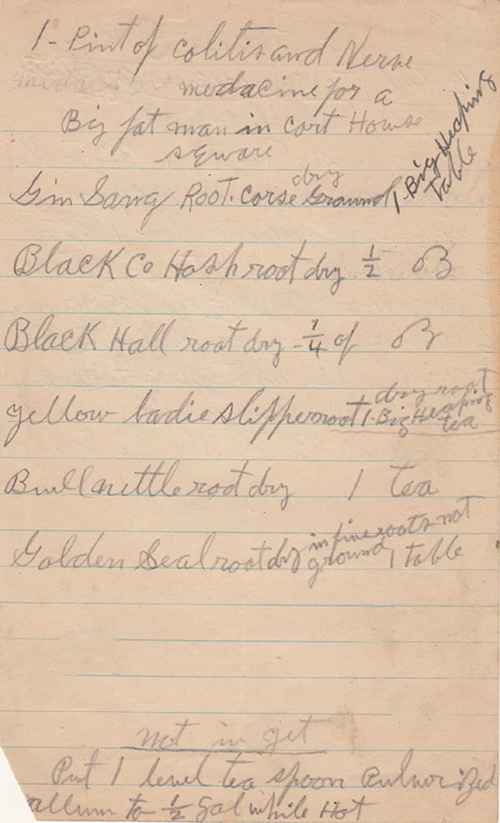 1 - Pint of colitis and Nerve
medacine for a
Big fat man in cort House
sqware
Gin Sang Root. Corse dry Ground 1 - Big Heaping Table
Black Co Hash root dry 1/2 oz
Black Hall root dry - 1/4 of oz
yellow ladie slipper root 1 - Big Heaping tea dry root
Bull nettle root dry 1 tea
Golden Seal root dry in fine roots not ground 1 Table
not in yet
Put 1 level tea spoon Pulverized
allum to 1/2 gal while Hot